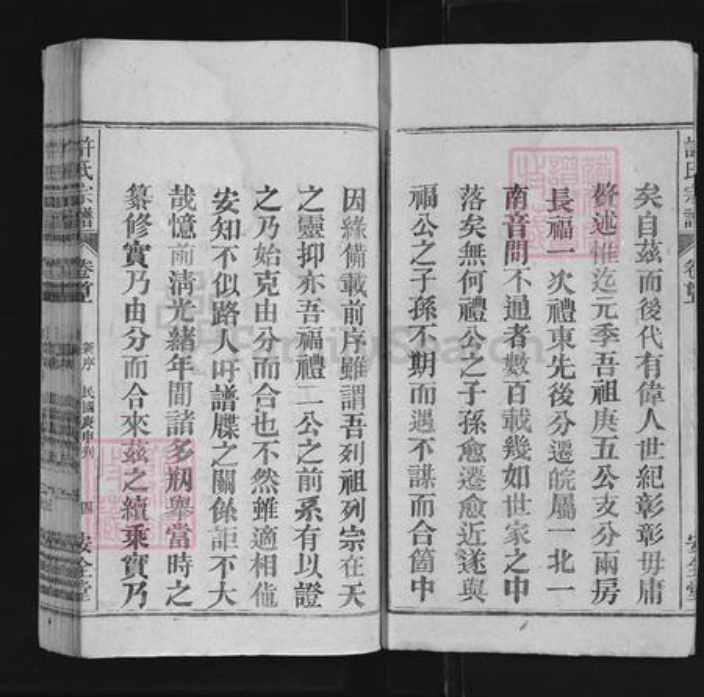 矣自茲而後代有偉人世紀彰彰毋庸
贅述惟迄元季吾祖庚五公支分兩房
長福一次禮東先後分遷皖屬一北一
南音問不通者數百載幾如世家之中
落矣無何禮公之子孫愈遷愈近遂與
福公之子孫不期而遇不謀而合箇中
因緣備載前序雖謂吾列祖列宗在天
之靈抑亦吾福禮二公之前系有以證
之乃始克由分而合也不然雖適相值
安知不似路人吁譜牒之關係詎不大
哉憶前清光緒年間諸多剏舉當時之
纂修實乃由分而合來茲之續乘實乃
許氏宗譜
卷首
新序
民國庚申刊
四
安全堂
FamilySearch